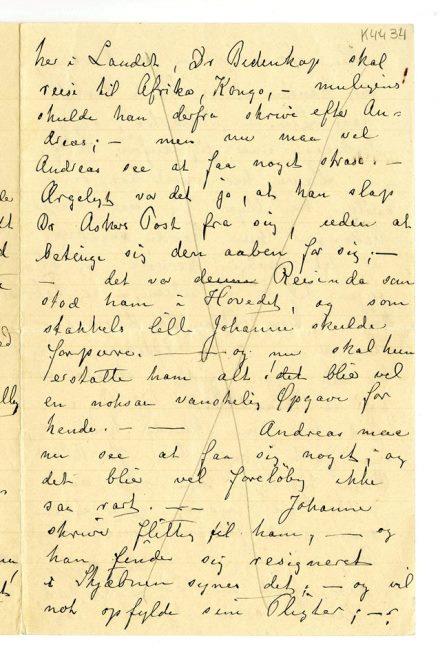 K4434
her i Landet, Dr Bedenkap skal
reise til Afrika, Kongo, – muligens!
skulde han derfra skrive efter An=
dreas; – men nu maa vel
Andreas see at faa noget strax. –
Ærgeligt var det jo, at han slap
Dr Askers Post fra sig, uden at
betinge sig den aaben for sig; –
– det var denne Reisen da som
stod ham i Hovedet, og som
stakkels lille Johanne skulde
forpurre. – og nu skal hun
erstatte ham alt! det blir vel
en noksaa vanskelig Opgave for
hende. – – Andreas maa
nu see at faa sig noget, og
det blir vel foreløbig ikke
saa rart. – – Johanne
skrive flittig til ham, – og
han finder sig resigneret
i Skjæbnen synes det; – og vil
nok opfylde sine Pligter; –